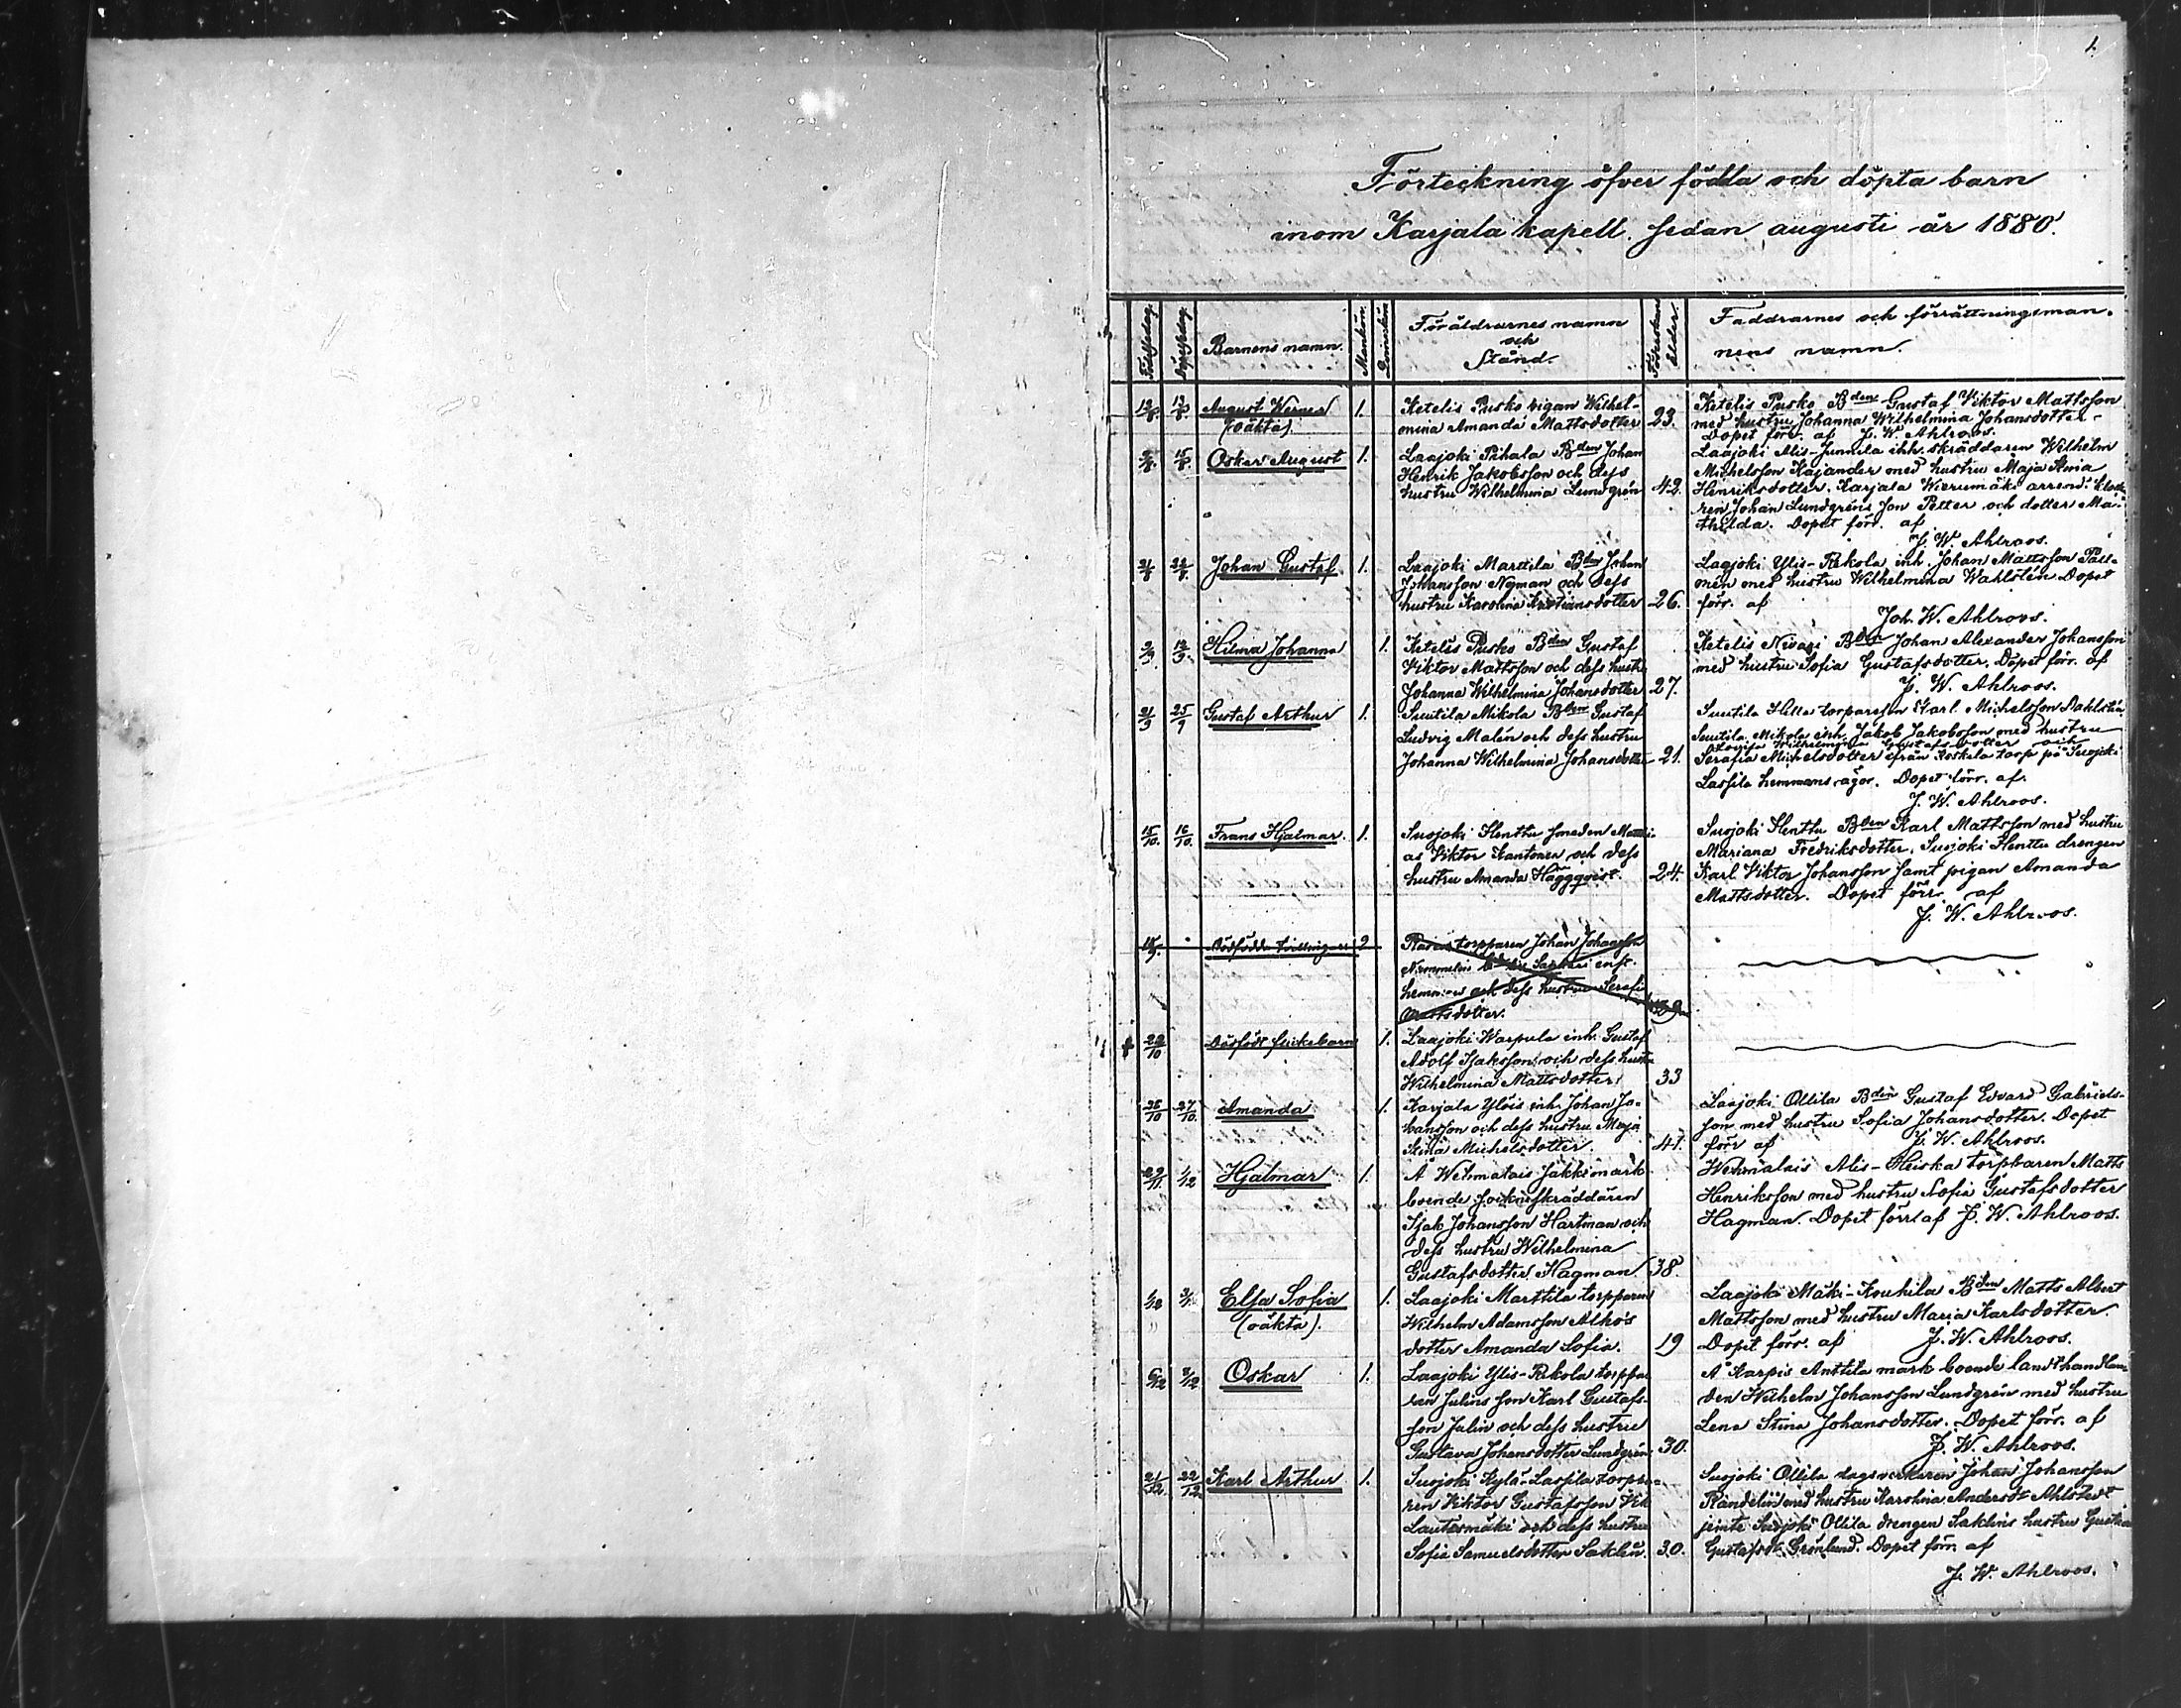 1.
Förteckning öfver födda och döpta barn
inom Karjala kapell sedan augusti år 1880.
Födelsedag. Döpelsedag. Barnens namn. Mankön. Qvinkön. Föräldrarnes namn och Stånd. Föderskans ålder. Faddrarnes och förrättningsman-
nens namn.
12/8. 13/8. August Werner 1. Ketelis Pusko pigan Wilhel- 23. Ketelis Pusko Bden Gustaf Viktor Mattsson
(oäkta). mina Amanda Mattsdotter med hustru Johanna Wilhelmina Johansdotter-
Dopet förr. af J. W. Ahlroos.
15/8. Oskar August 1. Laajoki Pihala Bden Johan Laajoki Alis-Junnila inh. skräddaren Wilhelm
Henrik Jakobsson och dess Michelsson Kajander med hustru Maja
hustru Wilhelmina Lundgrén 42. Henriksdotter. Karjala arrend. klocka-
ren Johan Lundgréns son Petter och dotter Ma-
thilda. Dopet förr. af
J. W. Ahlroos.
21/8 22/8. Johan Gustaf 1. Laajoki Marttila Bden Johan Laajoki Ylis-Rekola inh. Johan Mattsson
Johansson Nyman och dess med hustru Wilhelmina Wahlstén. Dopet
hustru Karolina Kristiansdotter 26. förr. af
Joh. W. Ahlroos.
9/9. 12/9. Hilma Johanna 1. Ketelis Pusko Bden Gustaf Ketelis Bden Johan Alexander Johansson
Viktor Mattsson och dess hustru med hustru Sofia Gustafsdotter. Dopet förr. af
Johanna Wilhelmina Johansdotter 27. J. W. Ahlroos.
21/9 25/9 Gustaf Arthur 1. Suutila Mikola Bden Gustaf Suutila torparesson Karl Michelsson
Ludvig Malén och dess hustru Suutila Mikola inh. Jakob Jakobsson med hustru
Lovisa Wilhelmina Gustafsdotter och
Johanna Wilhelmina Johansdotter 21. Serafia Michelsdotter ifrån Koskela torp på Suojoki
Lassila hemmans ägor. Dopet förr. af.
J. W. Ahlroos.
15/10. 16/10. Frans Hjalmar. 1. Suojoki Henttu smeden Matti- Suojoki Henttu Bden Karl Mattsson med hustru
as Viktor Kantonen och dess Mariana Fredriksdotter. Suojoki Henttu drengen
hustru Amanda Häggqvist. 24. Karl Viktor Johansson samt pigan Amanda
Mattsdotter. Dopet förr. af
J. W. Ahlroos.
Dödfödda tvillingar 2 torpparen Johan Johansson
hemm och dess hustru Serafia
39
22/10 Dödfödt flickebarn 1. Laajoki Warpula inh. Gustaf
Adolf Isaksson och dess hustru
Wilhelmina Mattsdotter 33
25/10 27/10. Amanda 1. Karjala Ylöis inh. Johan Jo- Laajoki Ollila Bden Gustaf Edvard Gabriels-
hansson och dess hustru Maja son med hustru Sofia Johansdotter. Dopet
Stina Michelsdotter. 41. förr af J. W. Ahlroos.
29/11. 1/12 Hjalmar 1. Å Wehmalais Jakki mark Wehmalais Alis-Heiska torpparen Matts
boende sockneskräddaren Henriksson med hustru Sofia Gustafsdotter
Isak Johansson Hartman och Hagman. Dopet förr. af J. W. Ahlroos.
dess hustru Wilhelmina
Gustafsdotter Hagman 38.
1/12 Elsa Sofia 1. Laajoki Marttila torpparen Laajoki Mäki-Kouhila Bden Matts Albert
(oäkta). Wilhelm Adamsson Alho's Mattsson med hustru Maria Karlsdotter.
dotter Amanda Sofia. 19 Dopet förr. af J. W. Ahlroos.
6/12 8/12 Oskar 1. Laajoki Ylis-Rekola torppa- Å Karpis Anttila mark boende landthandlan-
ren Julins son Karl Gustafs- den Wilhelm Johansson Lundgrén med hustru
son Julin och dess hustru Lena Stina Johansdotter. Dopet förr. af
Gustava Johansdotter Lundgrén. 30. J. W. Ahlroos.
21/12. 22/12. Karl Arthur 1. Suojoki Kylä-Lassila torppa- Suojoki Ollila dagsverkaren Johan Johansson
ren Viktor Gustafsson Randelin med hustru Karolina Andersdr Ahlstedt
Lautesmäki och dess hustru jemte Suojoki Ollila drengen Saklins hustru
Sofia Samuelsdotter Saklin. 30. Gustafsdr Grönlund. Dopet förr. af
J. W. Ahlroos.